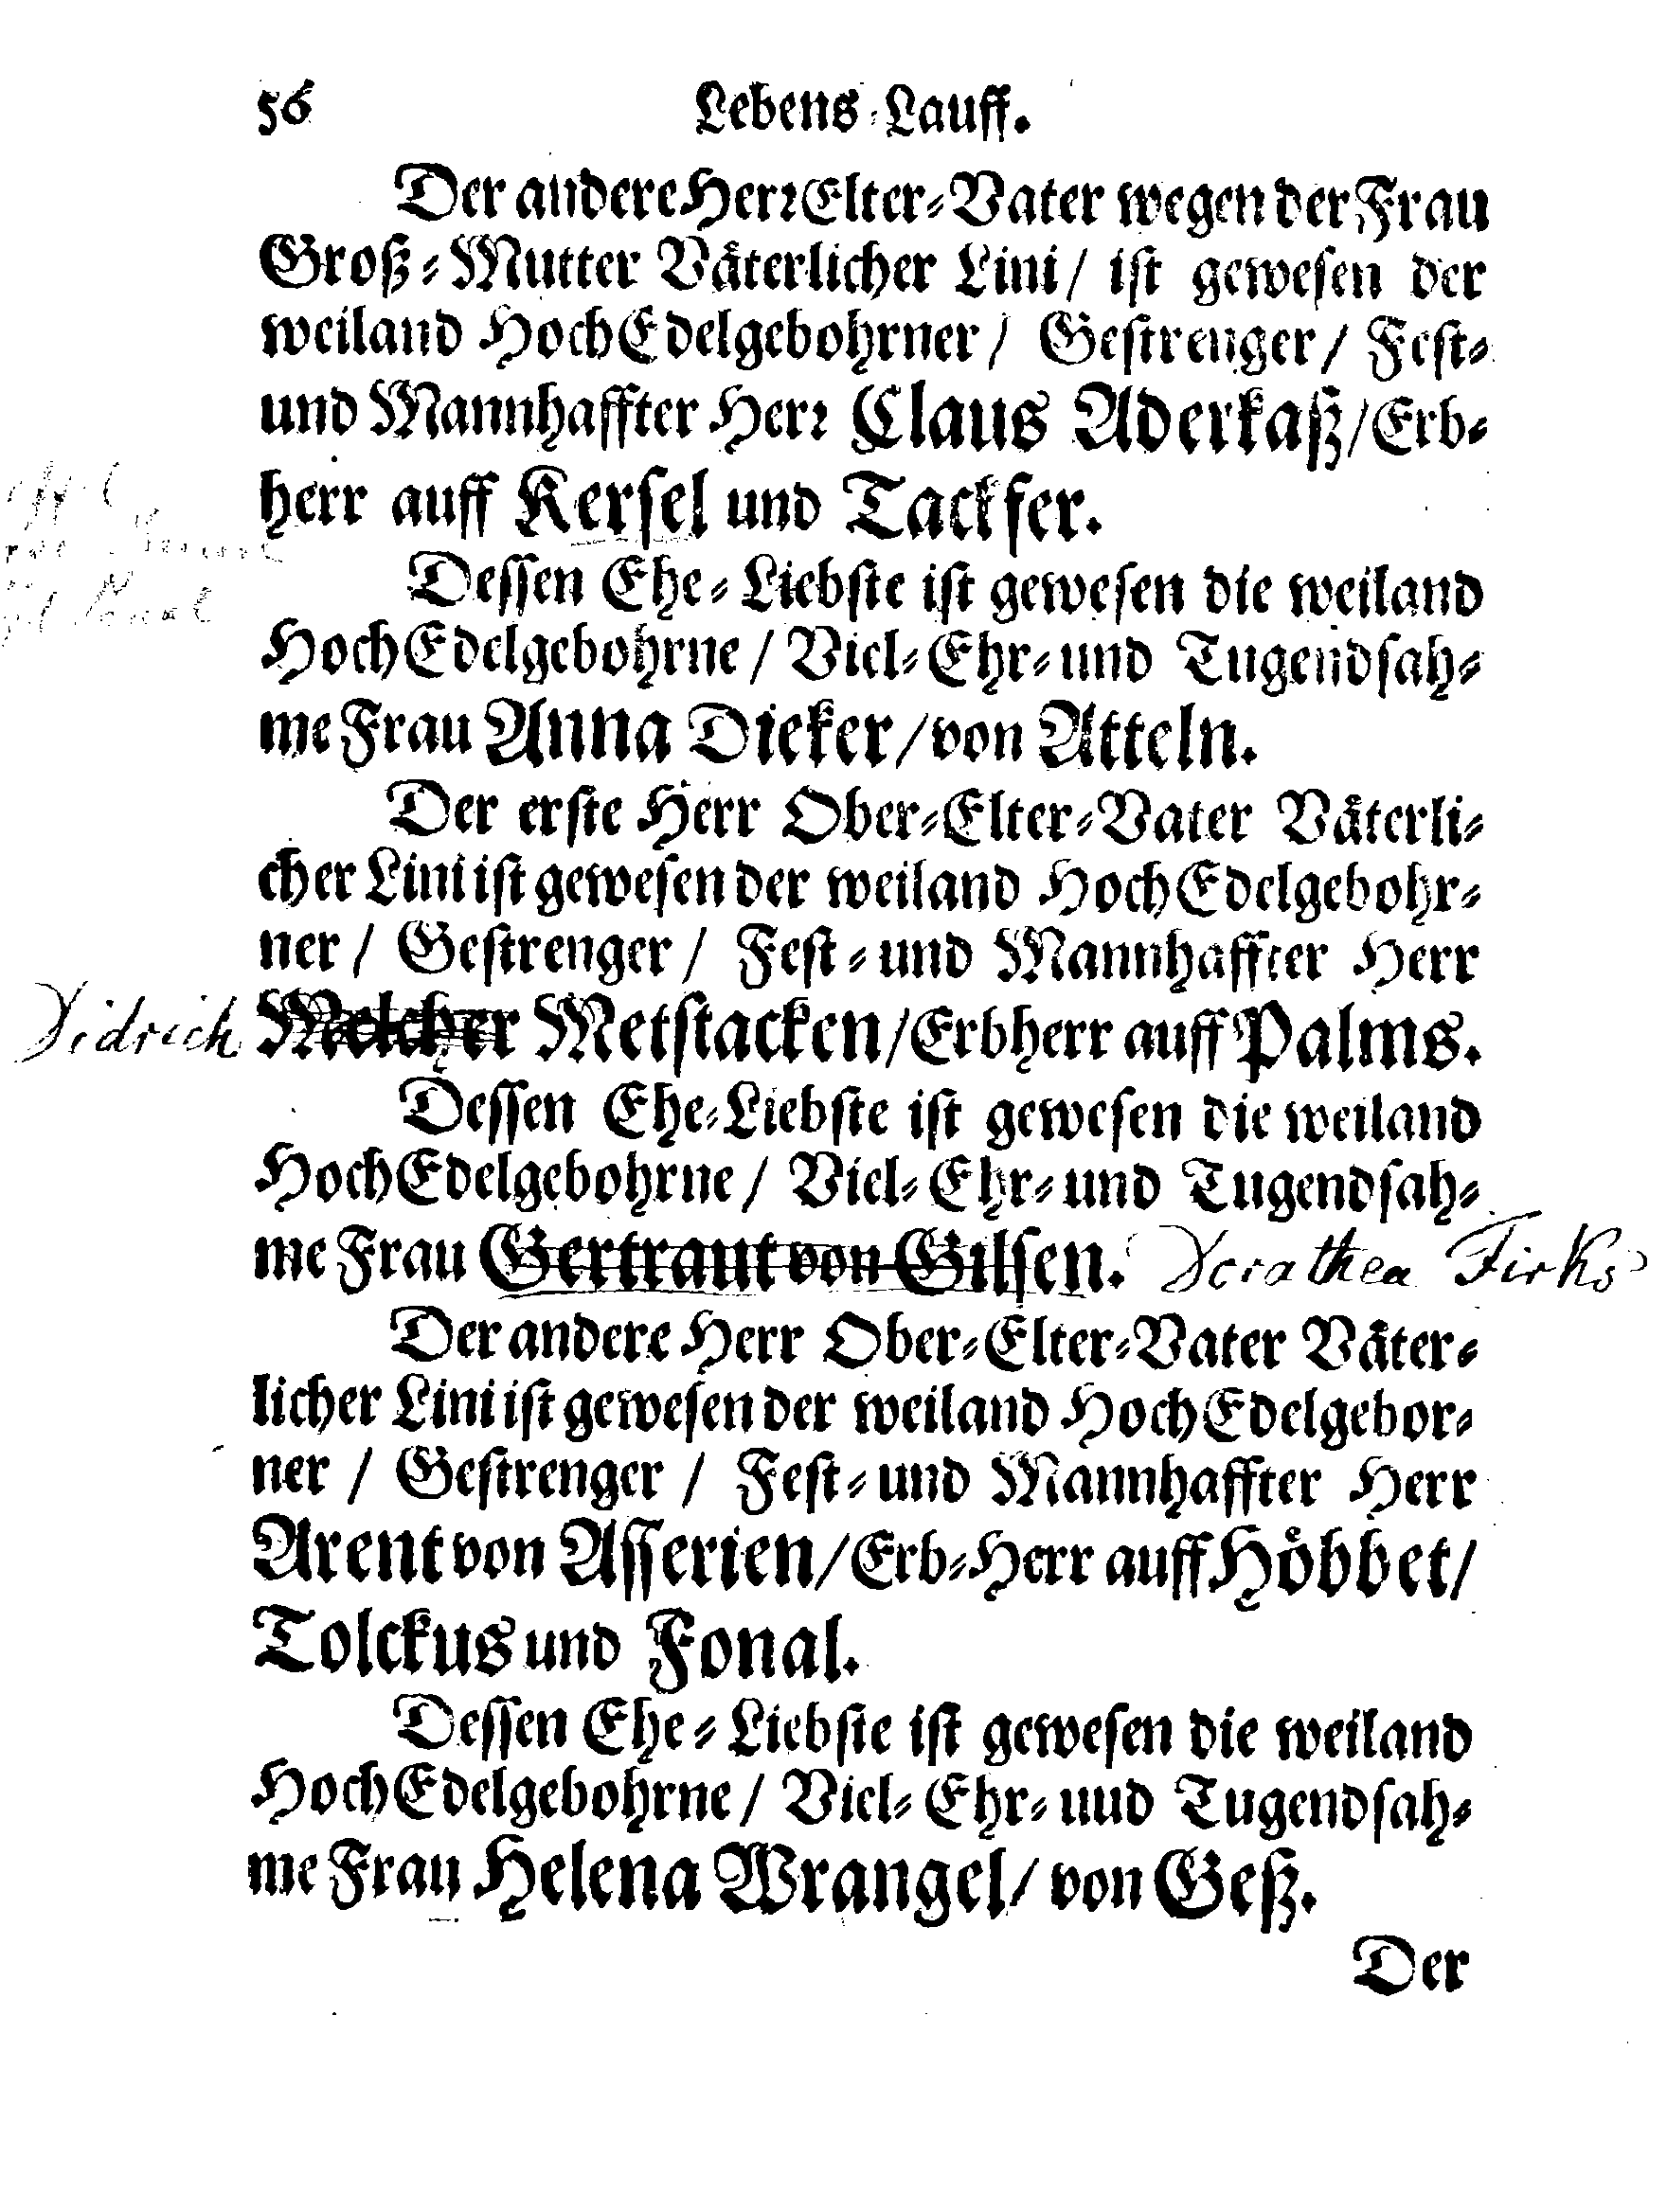 56 Lebens-Lauff.
Der andere Herr Elter-Vater wegen der Frau
Groß-Mutter Väterlicher Lini/ ist gewesen der
weiland HochEdelgebohrner/ Gestrenger/ Fest-
und Mannhaffter Herr Claus Aderkaß/Erb-
herr auff Kersel und Tackfer.
Dessen Ehe-Liebste ist gewesen die weiland
HochEdelgebohrne/ Viel-Ehr-und Tugendsah-
me Frau Anna Dieker/von Atteln.
Der erste Herr Ober-Elter-Vater Väterli-
cher Lini ist gewesen der weiland HochEdelgebohr-
ner/ Gestrenger/ Fest-und Mannhaffter Herr
Didrich Melcher Metstacken/Erbherr auff Palms.
Dessen Ehe-Liebste ist gewesen die weiland
HochEdelgebohrne/ Viel-Ehr-und Tugendsah-
me Frau Gertraut von Gilsen. Dorathea Firks
Der andere Herr Ober-Elter-Vater Väter-
licher Lini ist gewesen der weiland HochEdelgebor-
ner/ Gestrenger/ Fest-und Mannhaffter Herr
Arent von Asserien/Erb-Herr auff Höbbet/
Tolckus und Fonal.
Dessen Ehe-Liebste ist gewesen die weiland
HochEdelgebohrne/ Viel-Ehr-uud Tugendsah-
me Frau Helena Wrangel/ von Geß.
Der